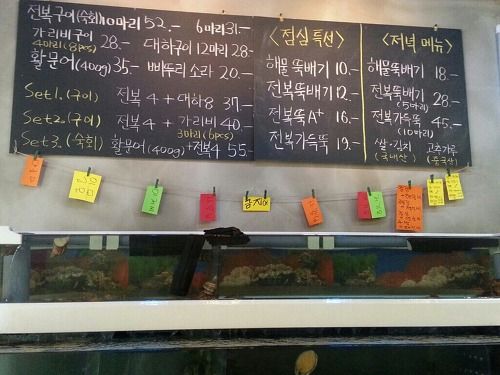 전복구이(숙회)10마리 52.- 6마리 31.-
가리비구이 28.- 대하구이 12마리 28-
4마리(8pcs)
활문어(400g) 35.- 삐뚜리 소라 20.-
Set1.(구이) 전복 4 + 대하 8 37.-
Set2.(구이) 전복 4 + 가리비 40.-
3마리(6pcs)
Set3.(숙회) 활문어(400g)+전복4 55.-
<점심 특선>
해물뚝배기 10.-
전복뚝배기 12.-
전복뚝A+ 16.-
전복가득뚝 19.-
<저녁 메뉴>
해물뚝배기 18.-
전복뚝배기 28.-
(5마리)
전복가득뚝 45.-
(10마리)
쌀.김치 고추가루
(국내산) (중국산)